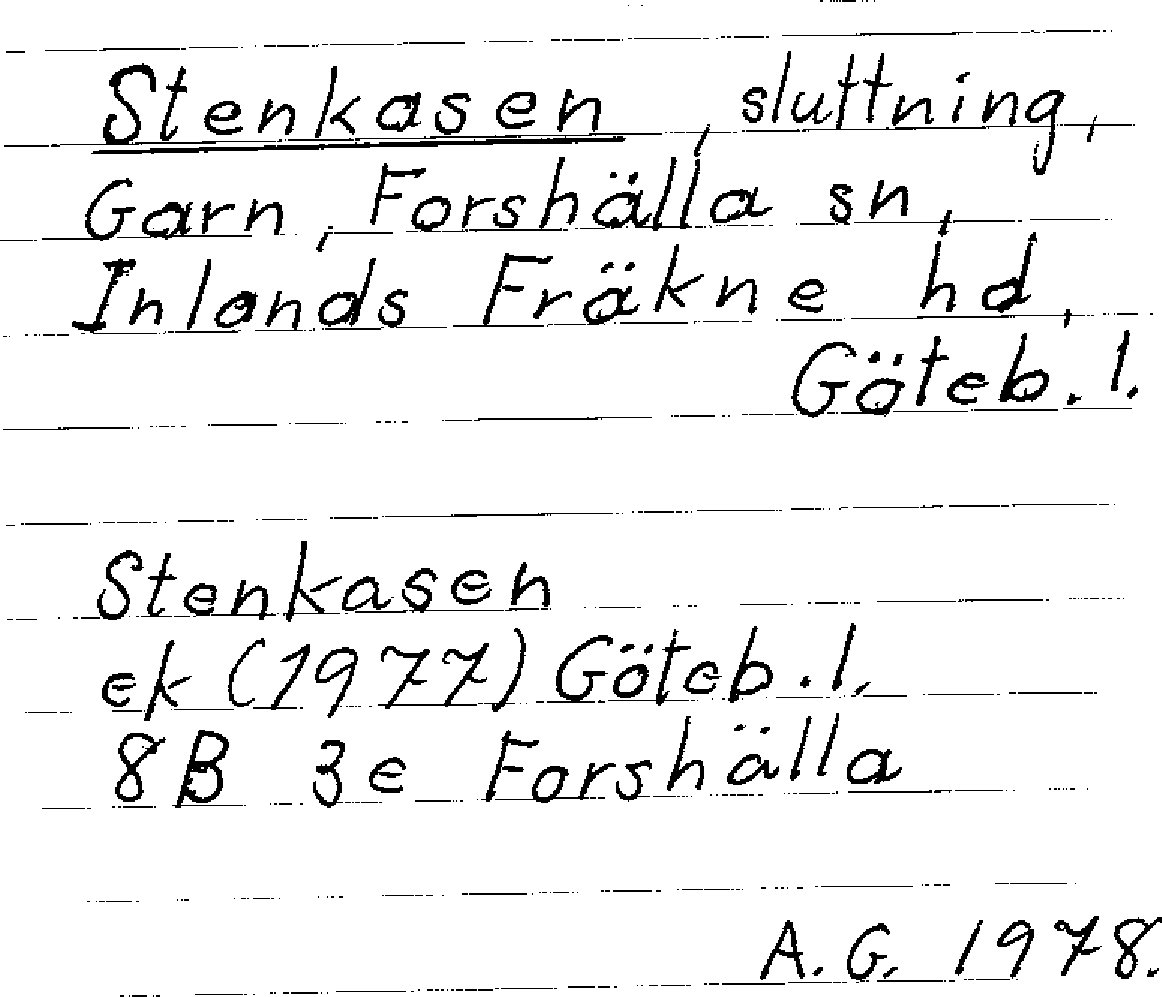 Stenkasen, sluttning,
Garn, Forshälla sn,
Inlands Fräkne hd,
Göteb. l.
Stenkasen
ek (1977) Göteb. l.
8B 3e Forshälla
A. G. 1978.